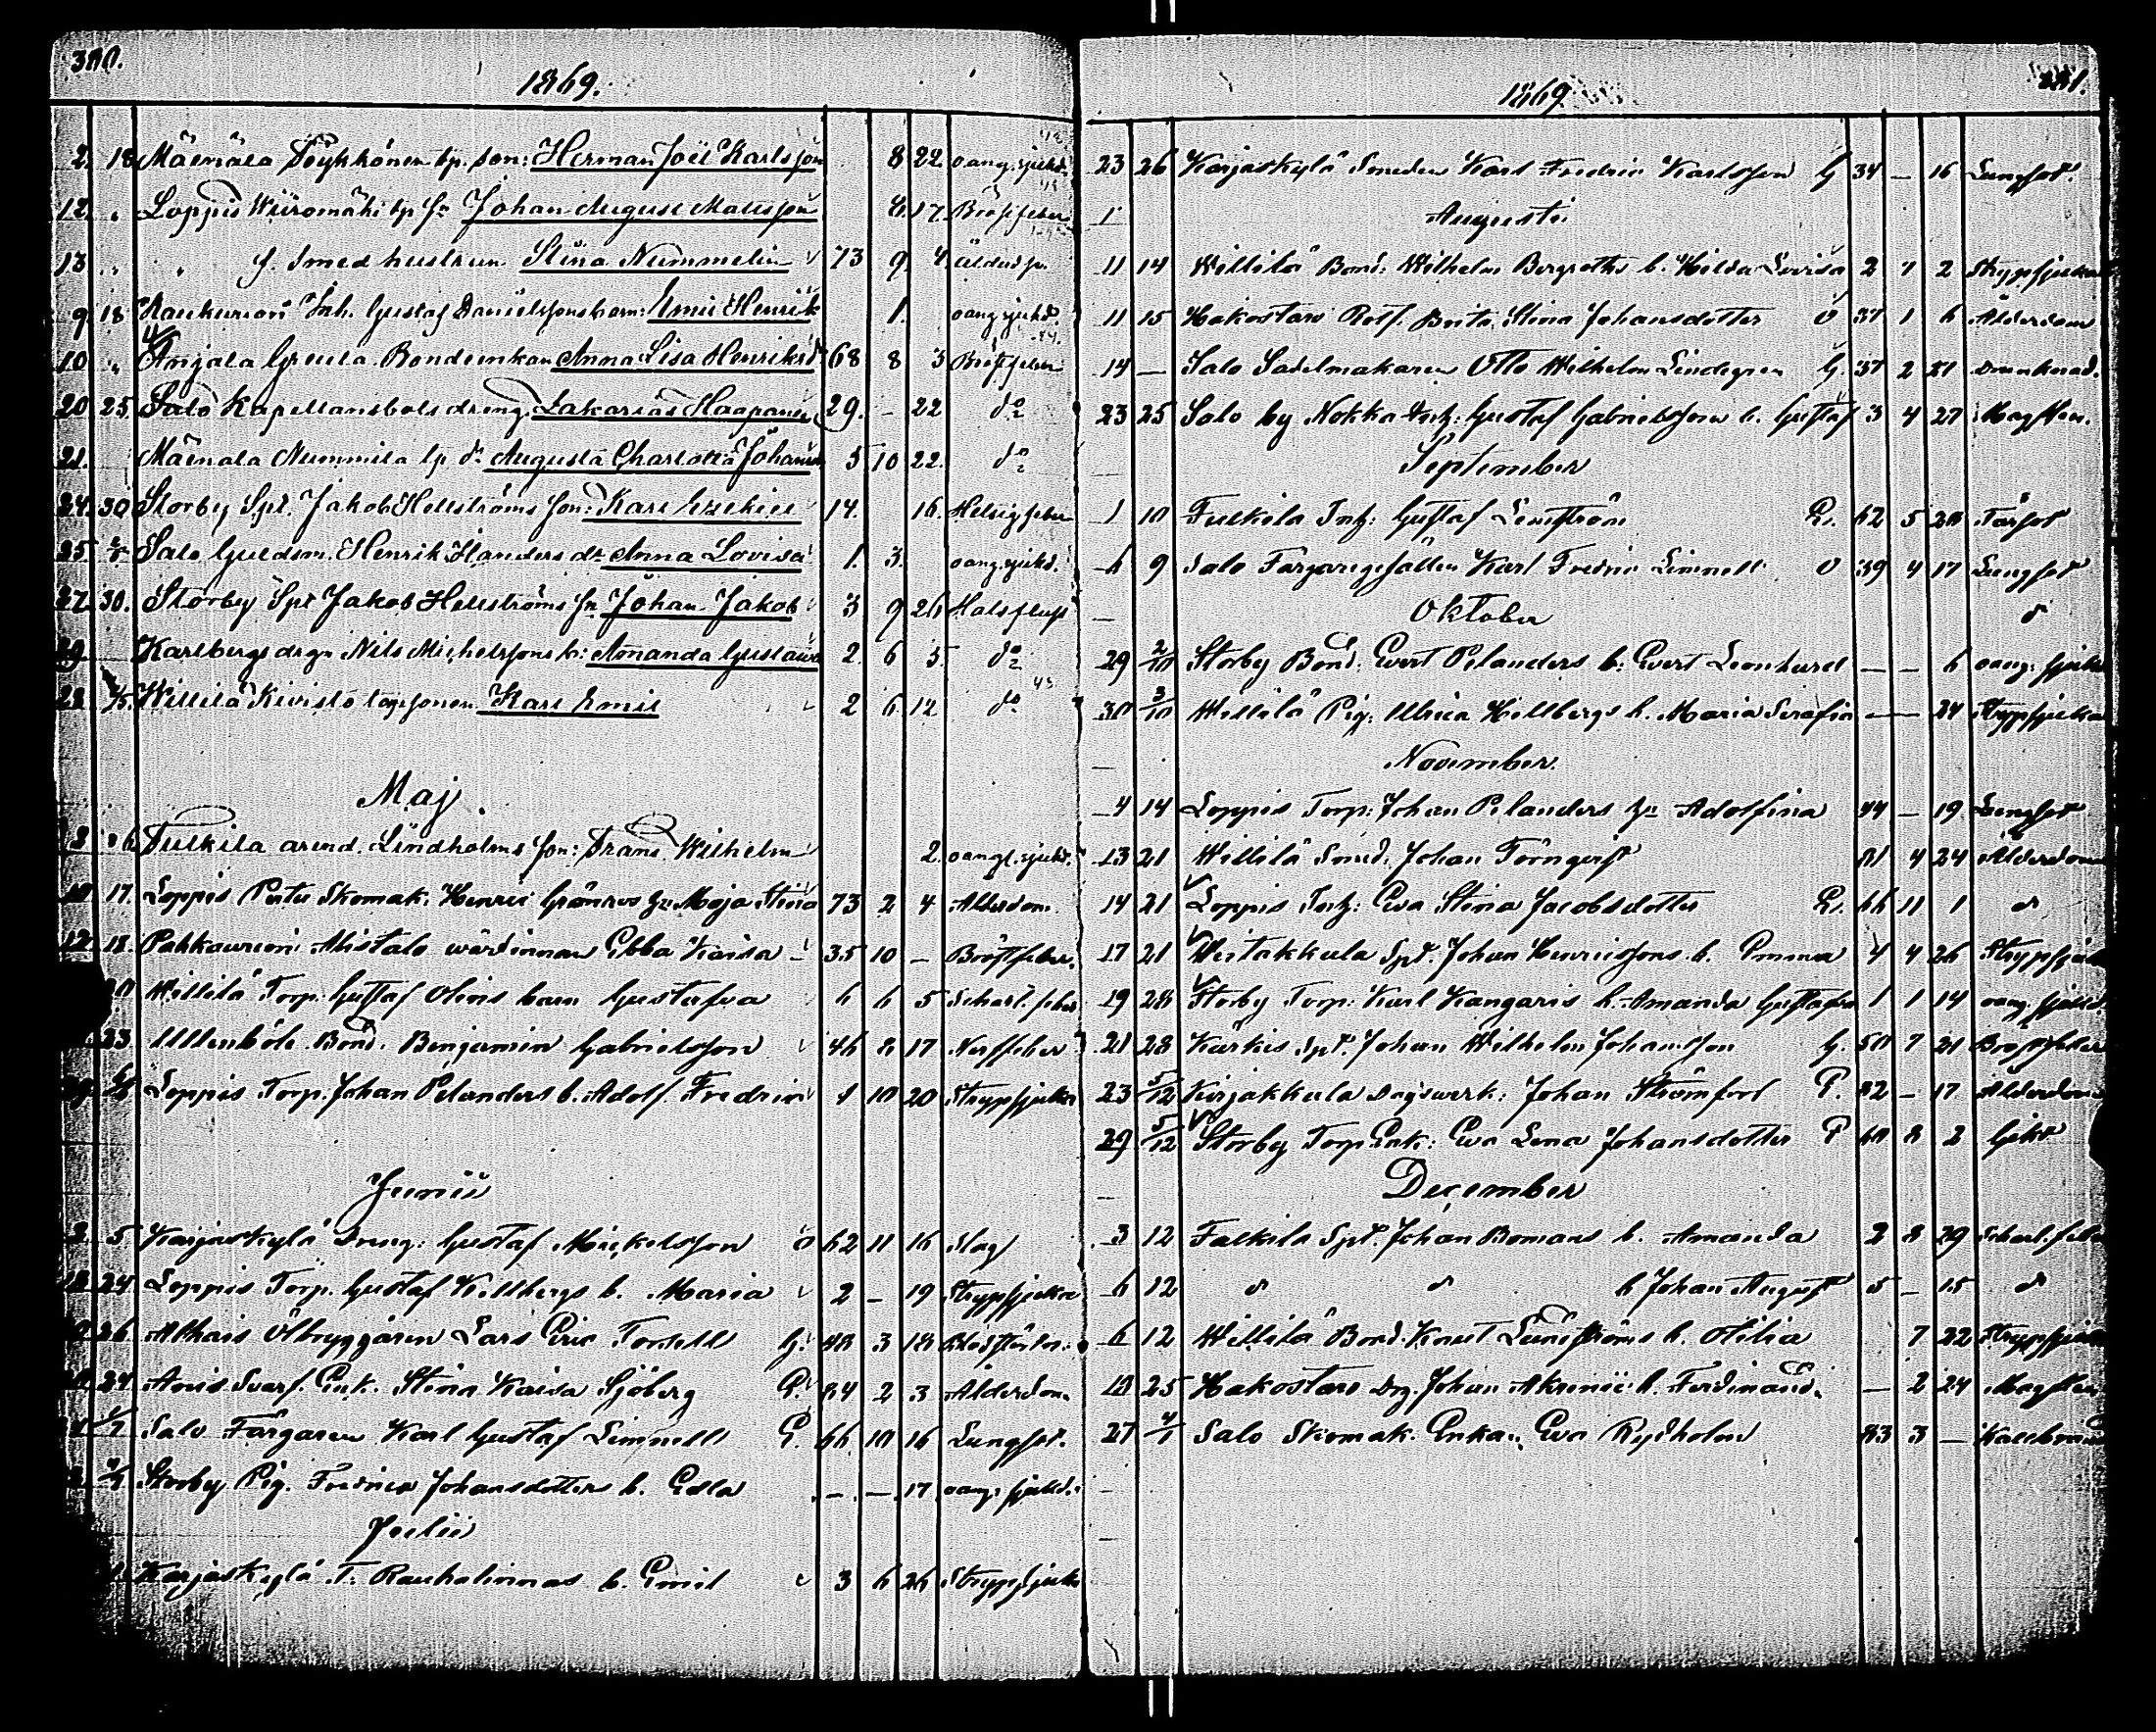 380.
1869.
2. 18 Mäenala Töykkönen tp. son: Herman Joël Karlsson 8 22. oang. sjukd.
12. " Loppis Wiiromäki tp sn Johan August Mattsson 17. Bröstfeber
13 " " f. Smedhustrun Stina Nummelin 73 9 4 ålderd.
9. 18 Inh. Gustaf Danielssons barn: Henrik 1. oang. sjukd.
10 " Anjala Greula Bondeenkan Anna Lisa Henriksd 68 8 3 Bröstfeber
20 25. Salo Kapellansbols dreng. Zakarias Haapanen 29. – 22 do
21. Mäenala Nummila tp dr Augusta Charlotta Johansd 5 10 22. do
24. 30 Storby Spt. Jakob Hellströms son: Karl Ezekiel 14. 16. feber
25. Salo Guldsm. Henrik Handers dr Anna Lovisa 1. 3. oang. sjukd.
27. 30. Storby Spt Jakob Hellströms sn Johan Jakob 3 9 26 Halsfluss
29 Karlbergs drgn Nils Michelssons b: Amanda Gustava 2. 6 5. do
28 Willilä Kivistö sonen Karl Emil 2 6. 12 do
Maj.
3 6 Tulkila arend. Lindholms son: Frans Wilhelm 2. oang. sjukd.
10 17. Loppis Skomak. Henric Grönroos hu Maja Stina 73 2 4 Ålderdom
12 18. Pahkavuori Alistalo wärdinnan Ebba Kaisa 35 10 – Bröstfeber.
Willilä Torp. Gustaf Olins barn Gustafva 6 6 5 Scharl. feber
23 Ullenböle Bond. Benjamin Gabrielsson 46 8 17 Nerffeber
29 Loppis Torp. Johan Pelanders b. Adolf Fredric 1 10 20 Strypsjuka
Junii
3 5 Karjaskylä Dreng: Gustaf Mickelsson 62 11 16 Slag
24 Loppis Torp. Gustaf Kellbergs b. Maria 2 – 19 Strypsjuka
26 Alhais Ölbryggaren Lars Eric Torsell G. 48 3 18
24 Anis Svarf. Enk. Stina Kaisa Sjöberg E. 84 2 3 Ålderdom
Salo Färgaren Karl Gustaf Limnell E. 66 10 16 Lungsot.
Storby Pig. Fredrica Johansdotters b. Edla – – 17 oang. sjukd.
Julii
Karjaskylä T. Rauhalinnas b. Emil 3 6 26 Strypsjuka
1869
381.
23 26 Karjaskylä Smeden Karl Fredric Karlsson G 34 – 16 Lungsot.
Augusti
11 14 Willilä Bond: Wilhelm Bergroths b. Hilda Lovisa 2 7 2 Strypsjuka
11 15 Hakostaro Rotf. Brita Stina Johansdotter O 37 1 6 Ålderdom
14 – Salo Sadelmakaren Otto Wilhelm Lindegren G. 37 2 21 Drunknad.
23 25 Salo by Nokka Inh: Gustaf Gabrielssons b. Gustaf 3 4 27
September
1 10 Tulkila Inh: Gustaf Lindström E. 62 5 20 Tärsot
6 9 Salo Färgaregesällen Karl Fredric Limnell O 39 4 17 Lungsot
Oktober
29 2/10 Storby Bond: Evert Pelanders b: Evert Leonhard – – 6 oang: sjukd
30 3/10 Willilä Pig: Ulrica Hellbergs b. Maria Serafia – – 24 Strypsjuka
November.
4 14 Loppis Torp: Johan Pelanders hu Adolfina 44 – 19 Lungsot
13 21 Willilä Smed. Johan Törnqvist 81 4 24 Ålderdom
14 21 Loppis Inh: Eva Stina Jacobsdotter E. 66 11 1 d
17 21 Veitakkala Spt. Johan Henricssons b. Emma 4 4 26 Strypsjuka
19 28 Storby Torp: Karl Kangaris b. Amanda Gustafva 1 1 14 oang. sjukd.
21 28 Kärkis Spt. Johan Wilhelm Johansson G. 50 7 21 Bröstfeber
23 5/12 Kirjakkala Dagsverk: Johan Strömfors E. 82 – 17 Ålderdom
29 5/12 Storby Torp Enk: Eva Lena Johansdotter E 60 8 2 Gikt
December
3 12 Tulkila Spt. Johan Bomans b. Amanda 2 8 29 Scharl. feber
6 12 d d b Johan August 5 – 15 d
6 12 Willilä Bond. Knut Lundströms b. Otilia 7 22 Strypsjuka
10 25 Hakostaro Drg. Johan b. Ferdinand. – 2 24
27 4/1 Salo Skomak. Enka: Eva Rydholm 83 3 – Kallbrand